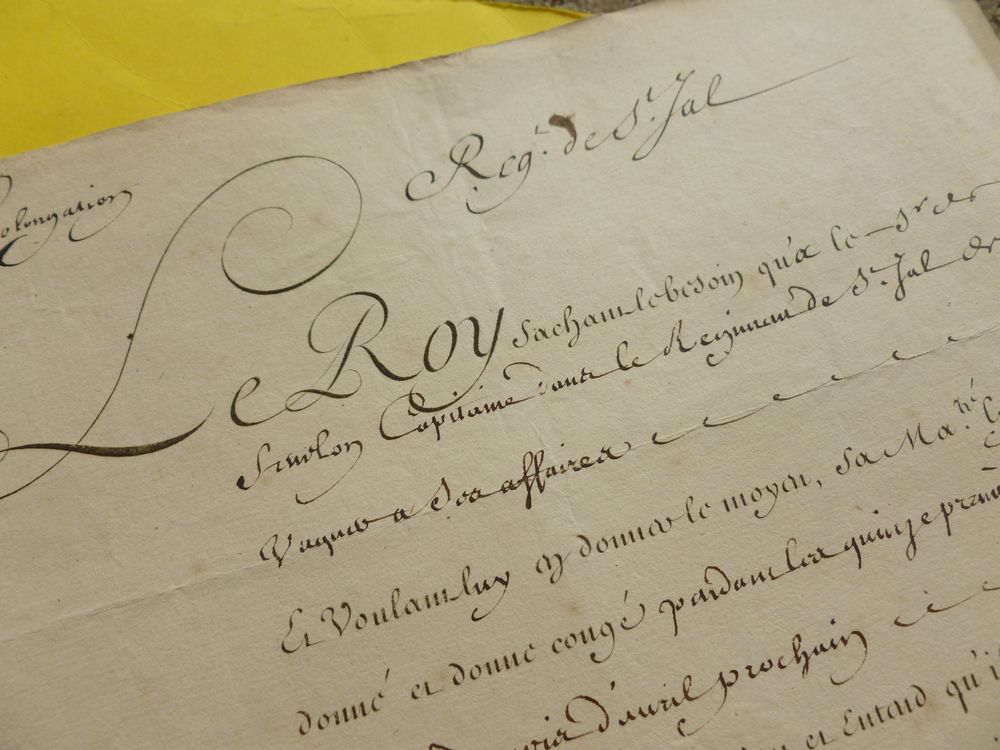 Reg.t de S.t Jal
olongation
Le Roy sachant le besoin qu'a le Sr de
Capitaine dans le Regiment de S.t Jal de
Vaquer a Ses affaires
Et Voulant luy en donner le moyen, Sa Ma.té
donné et donne congé pendant les quinze prem
d'avril prochain
et Entend qu'il